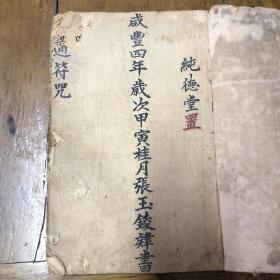 純德堂置
咸豐四年歲次甲寅桂月張玉錂諱書
通符咒